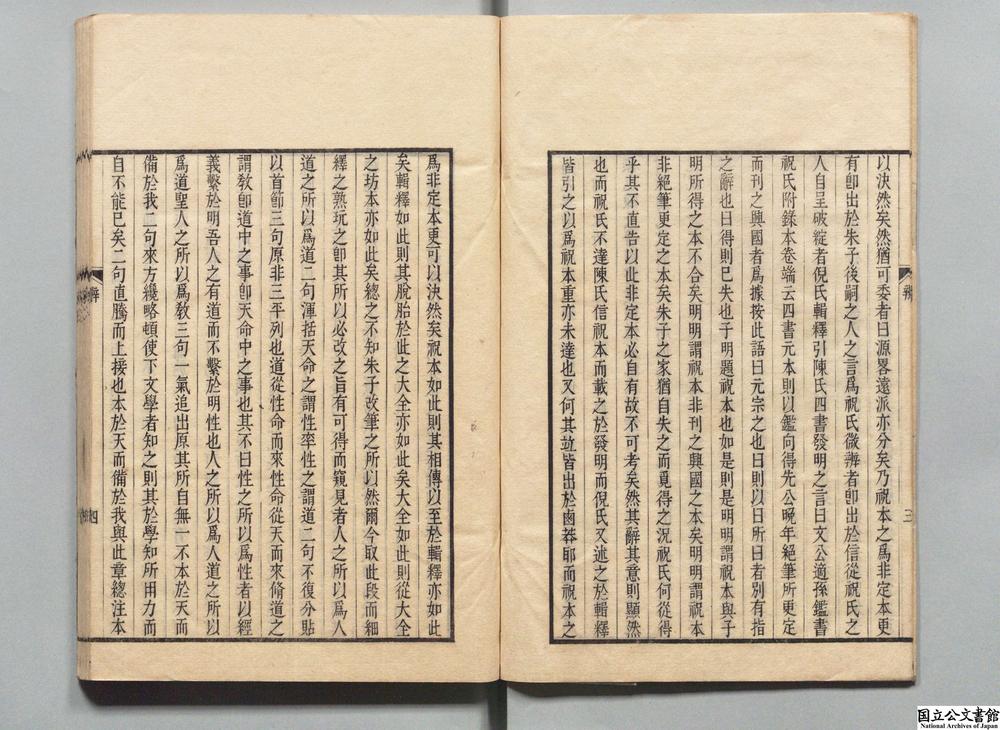 以決然矣然猶可委者曰源畧遠派亦分矣乃祝本之爲非定本更
有卽出於朱子後嗣之人之言爲祝氏微辨者卽出於信從祝氏之
人自呈破綻者倪氏輯釋引陳氏四書發明之言曰文公適孫鑑書
祝氏附錄本卷端云四書元本則以鑑向得先公晩年絕筆所更定
而刊之興國者爲據按此語曰元宗之也曰則以曰所曰者別有指
之辭也曰得則已失也子明題祝本也如是則是明明謂祝本與子
明所得之本不合矣明明謂祝本非刊之興國之本矣明明謂祝本
非絕筆更定之本矣朱子之家猶自失之而覓得之況祝氏何從得
乎其不直告以此非定本必自有故不可考矣然其辭其意則顯然
也而祝氏不達陳氏信祝本而載之於發明而倪氏又述之於輯釋
皆引之以爲祝本重亦未達也又何其竝皆出於鹵莽耶而祝本之
爲非定本更可以決然矣祝本如此則其相傳以至於輯釋亦如此
矣輯釋如此則其脫胎於此之大全亦如此矣大全如此則從大全
之坊本亦如此矣總之不知朱子改筆之所以然爾今取此段而細
釋之熟玩之卽其所以必改之旨有可得而窺見者人之所以爲人
道之所以爲道二句渾括天命之謂性率性之謂道二句不復分貼
以首節三句原非三平列也道從性命而來性命從天而來脩道之
謂敎卽道中之事卽天命中之事也其不曰性之所以爲性者以經
義繫於明吾人之有道而不繫於明性也人之所以爲人道之所以
爲道聖人之所以爲敎三句一氣追出原其所自無一不本於天而
備於我二句來方纔略頓使下文學者知之則其於學知所用力而
自不能已矣二句直騰而上接也本於天而備於我與此章總注本
辨
三
辨
四
国立公文書館
National Archives of Japan